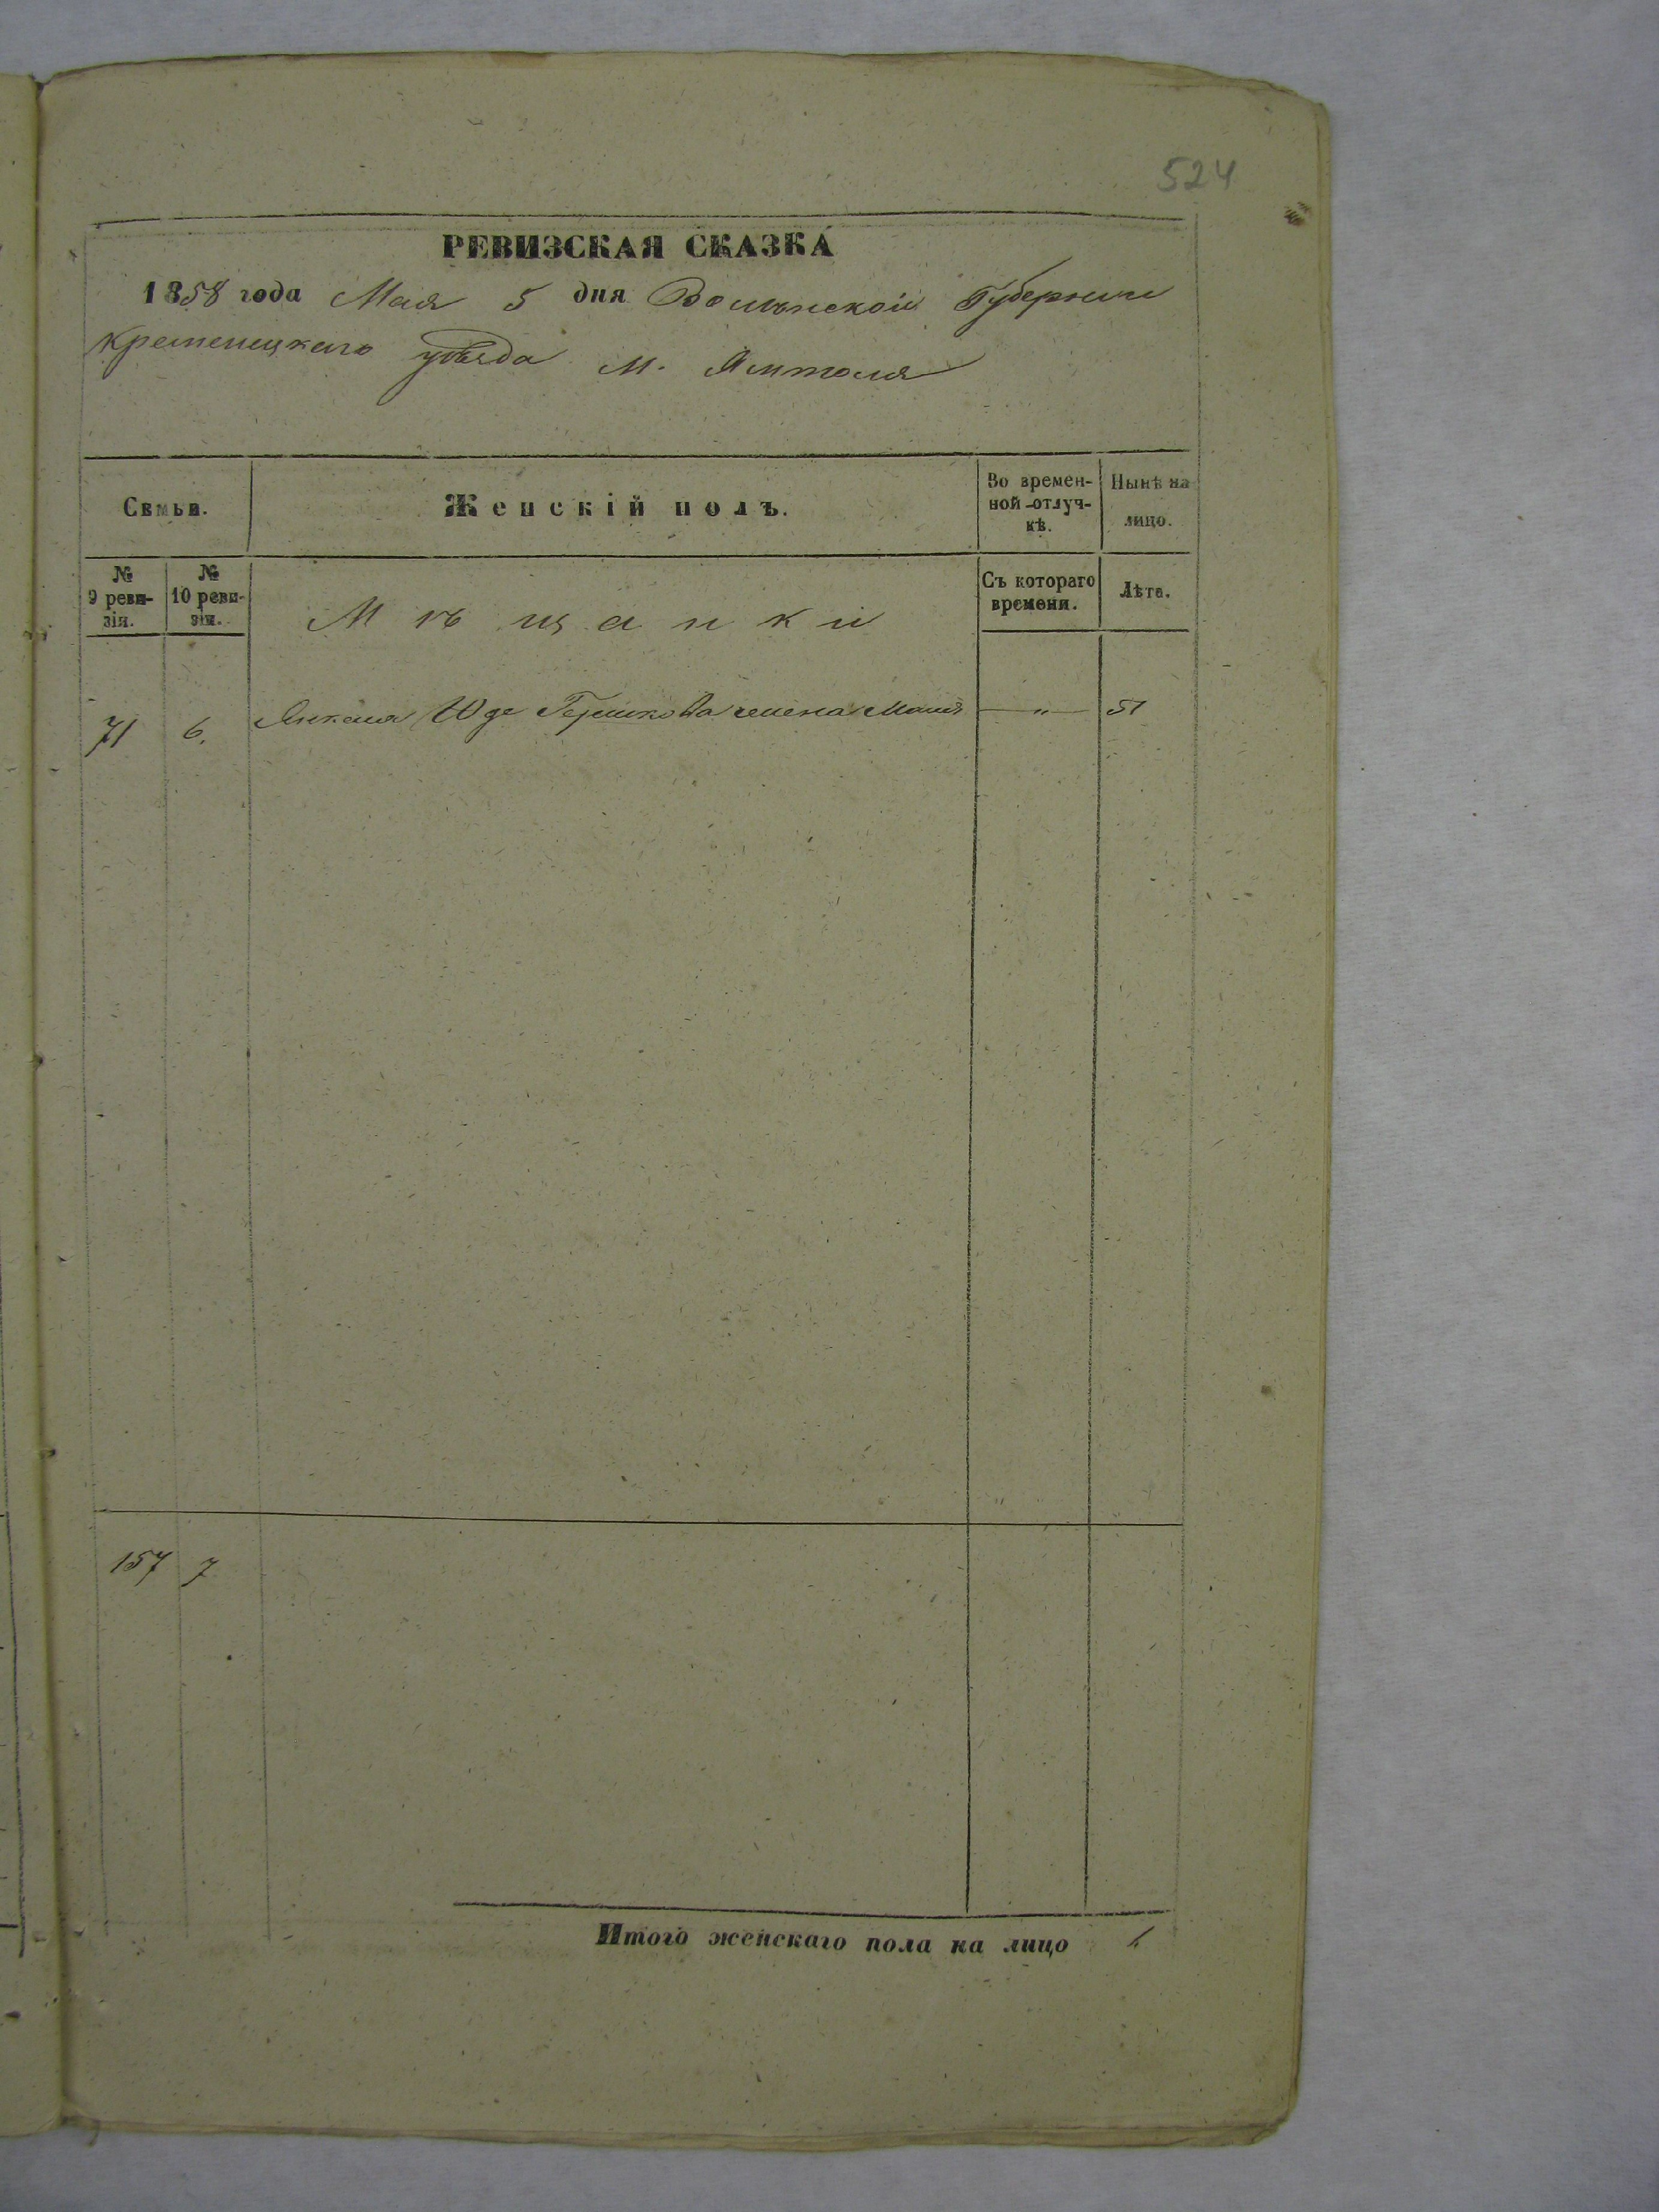 524
РЕВИЗСКАЯ СКАЗКА
1858 года Мая 5 дня Волынской Губернии
Кременецкаго уѣзда м. Ямполя
Семьи.
Женскій полъ.
Во времен-
ной отлуч-
кѣ.
Нынѣ на
лицо.
№
9 реви-
зіи.
№
10 реви-
зіи.
Мѣщанки
Съ котораго
времени.
Лѣта.
71 6. Янкеля Юде Гершкова жена Маля — " — 51
157 7
Итого женскаго пола на лицо 1